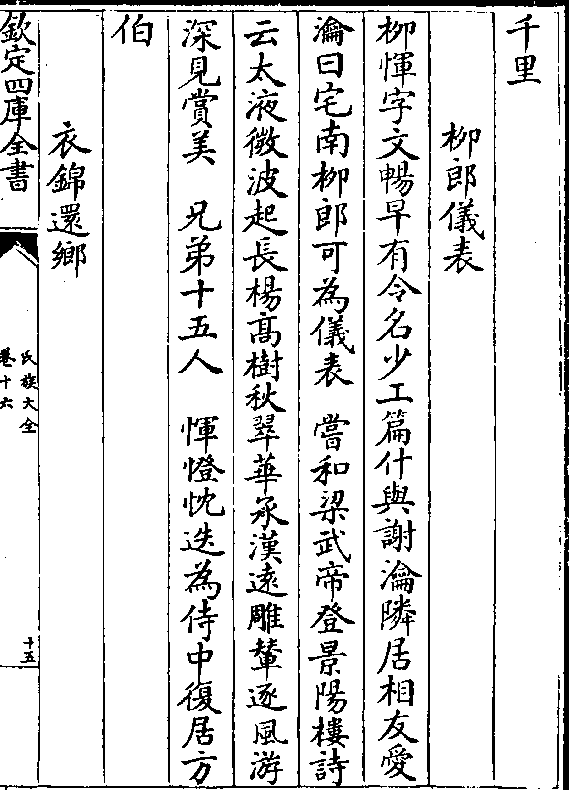 千里
柳郎儀表
柳惲字文暢早有令名少工篇什與謝瀹隣居相友愛
瀹曰宅南柳郎可為儀表　嘗和梁武帝登景陽樓詩
云太液微波起長楊高樹秋翠華承漢遠雕輦逐風游
深見賞美　兄弟十五人　惲憕忱迭為侍中復居方
伯
衣錦還鄉
欽定四庫全書
氏族大全
卷十六
十五